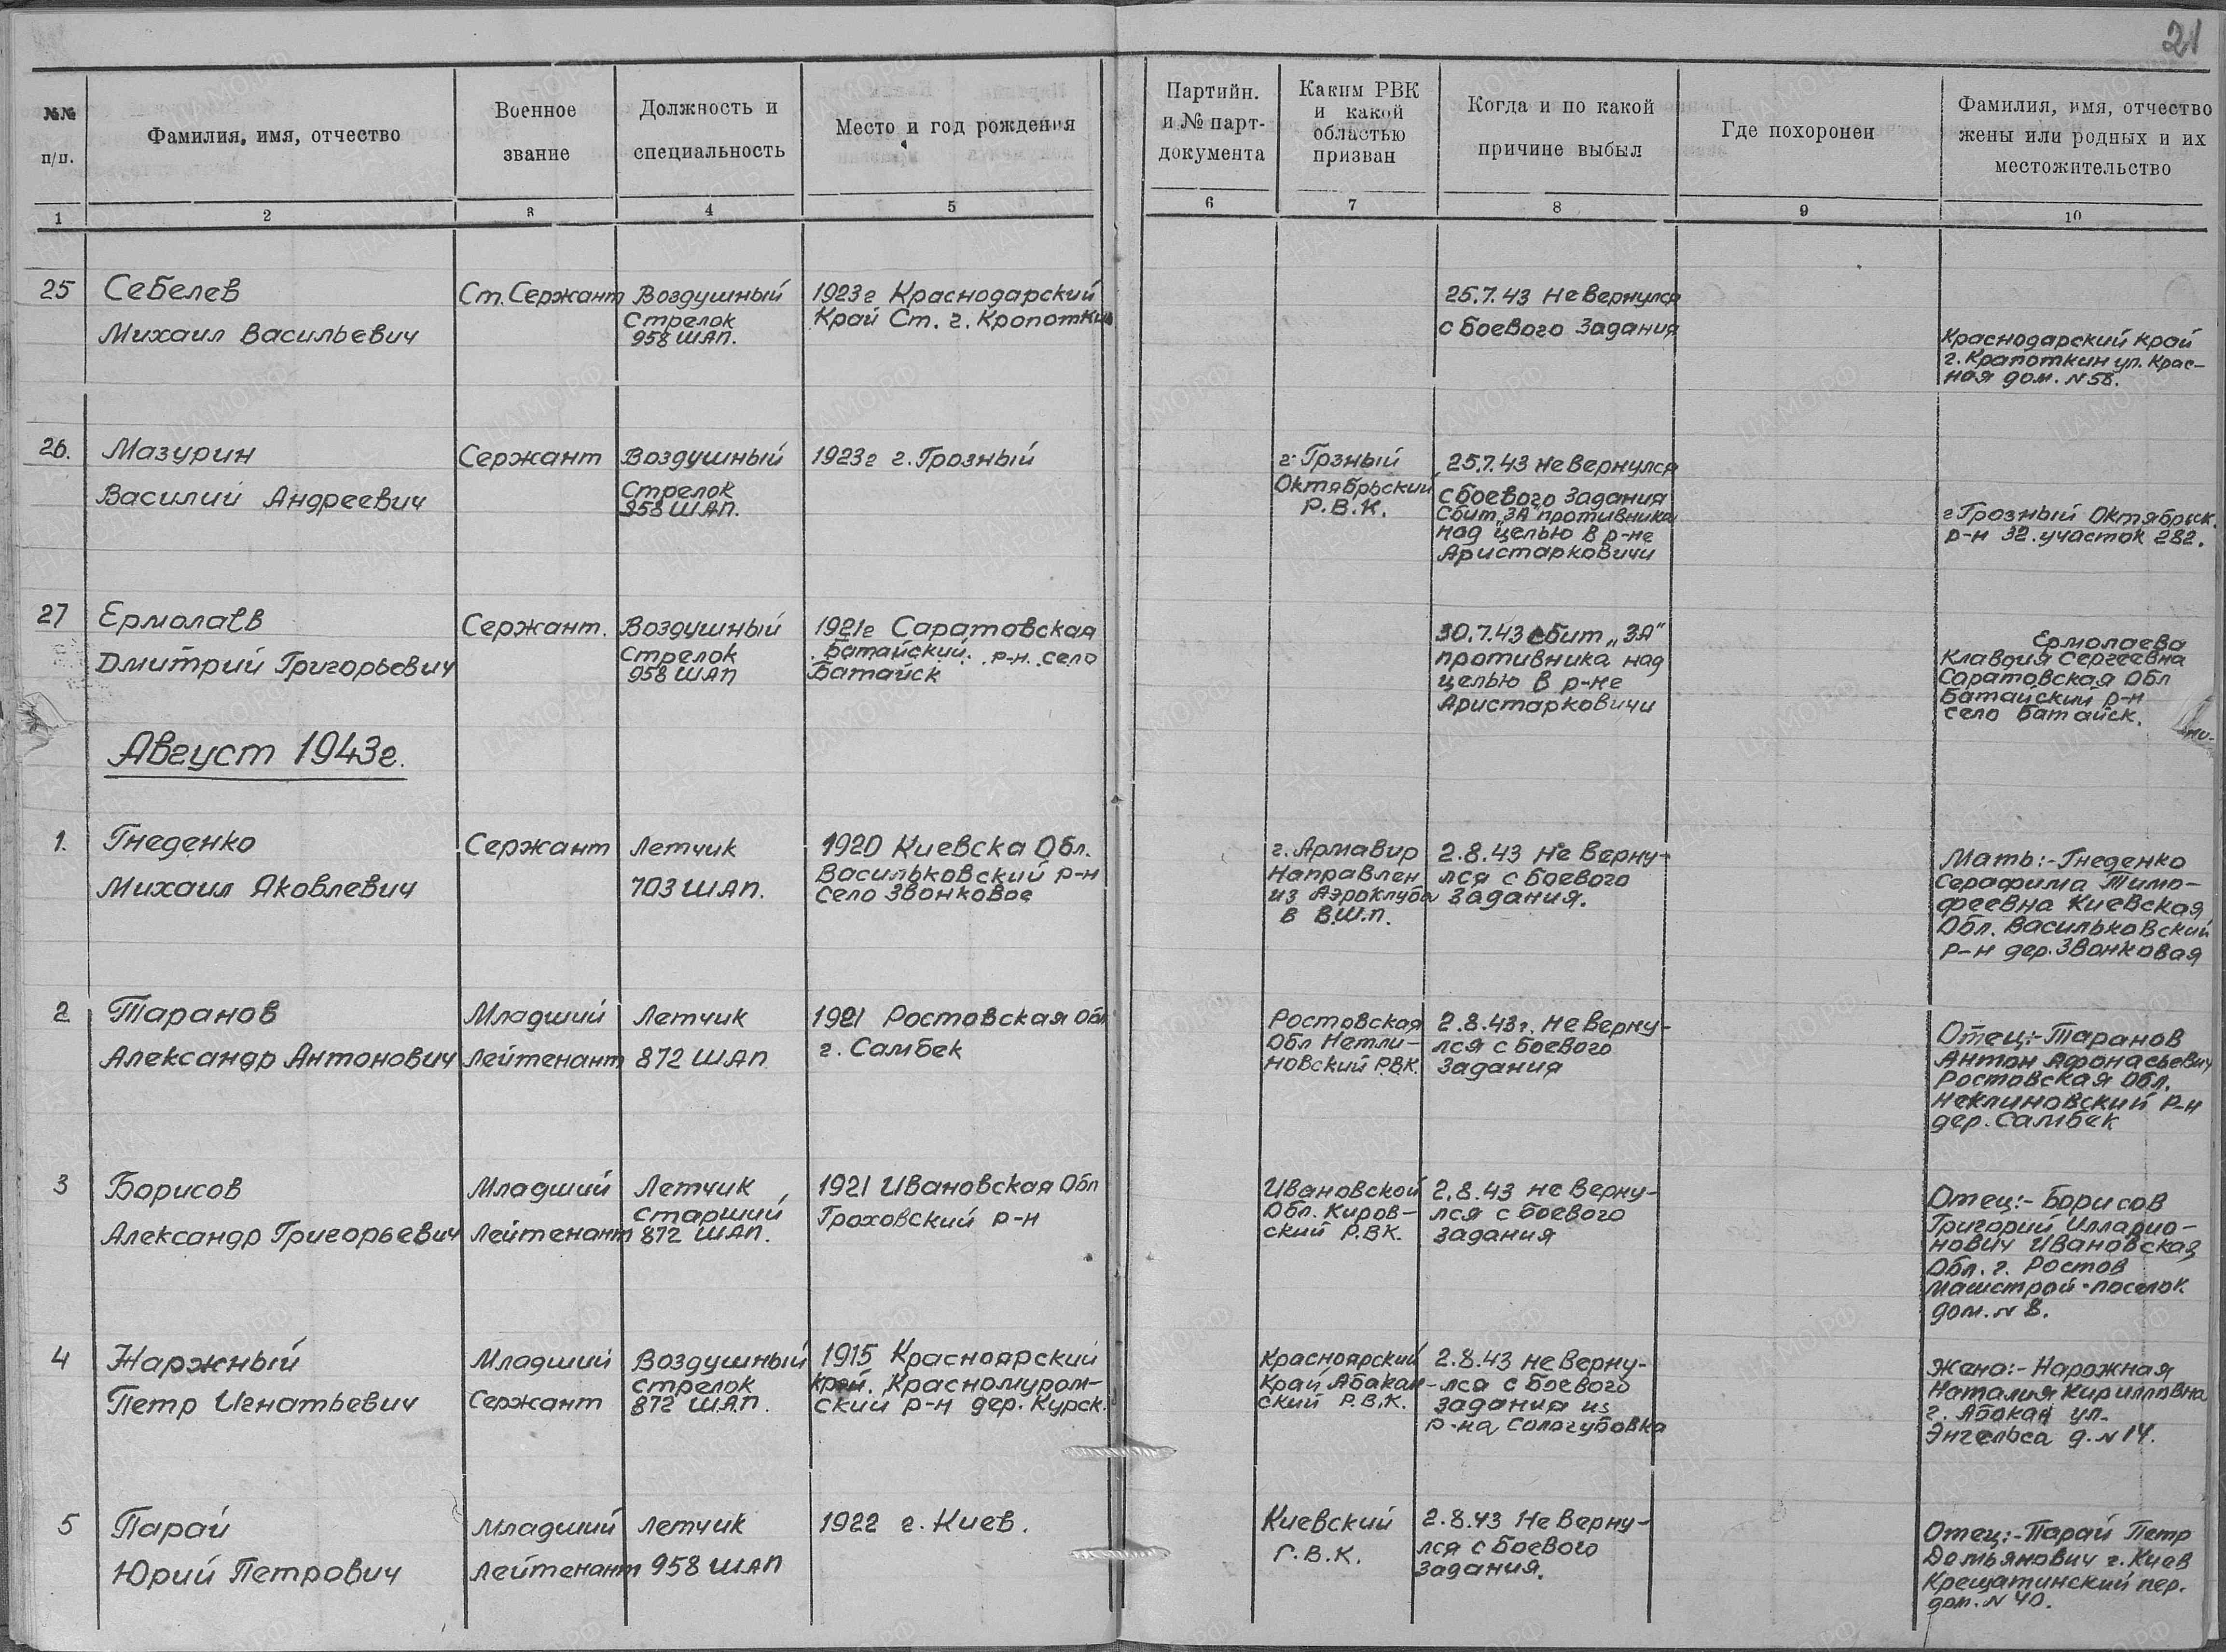 21
№№
п/п.
Фамилия, имя, отчество
Военное
звание
Должность и
специальность
Место и год рождения
Партийн.
и № парт-
документа
Каким РВК
и какой
областью
призван
Когда и по какой
причине выбыл
Где похоронен
Фамилия, имя, отчество
жены или родных и их
местожительство
1 2 3 4 5 6 7 8 9 10
25
Себелев
Михаил Васильевич
Ст. Сержант
Воздушный
Стрелок
958 ШАП.
1923г Краснодарский
Край Ст. г. Кропоткин
25.7.43 не вернулся
с боевого задания
Краснодарский край
г. Крапоткин ул. Крас-
ная дом. N 58.
26.
Мазурин
Василий Андреевич
Сержант
Воздушный
Стрелок
958 ШАП.
1923г г. Грозный
г. Грзный
Октябрьский
Р.В.К.
25.7.43 не вернулся
с боевого задания
Сбит „ЗА" противника
над целью в р-не
Аристарковичи
г Грозный Октябрьск.
р-н 32. участок 282.
27
Ермолаев
Дмитрий Григорьевич
Сержант.
Воздушный
Стрелок
958 ШАП
1921г Саратовская
Батайский р-н. село
Батайск
30.7.43 сбит „ЗА"
противника над
целью в р-не
Аристарковичи
Ермолаева
Клавдия Сергеевна
Саратовская Обл
Батайский р-н
село Батайск.
Август 1943г.
1.
Гнеденко
Михаил Яковлевич
Сержант
Летчик
703 ШАП.
1920 Киевска Обл.
Васильковский р-н
село Звонковое
г. Армавир
Направлен
из Аэроклуба
в В.Ш.П.
2.8.43 не верну-
лся с боевого
задания.
Мать:- Гнеденко
Серафима Тимо-
феевна Киевская
Обл. Васильковский
р-н дер. Звонковая
2
Таранов
Александр Антонович
Младший
Лейтенант
Летчик
872 ШАП
1921 Ростовская Обл
г. Самбек
Ростовская
Обл Нетли-
новский Р.В.К.
2.8.43г. не верну-
лся с боевого
задания
Отец:- Таранов
Антон Афонасьевич
Ростовская Обл.
Неклиновский Р-н
дер. Самбек
3
Борисов
Александр Григорьевич
Младший
Лейтенант
Летчик
старший
872 ШАП.
1921 Ивановская Обл
Гроховский р-н
Ивановской
Обл. Киров-
ский Р.В.К.
2.8.43 не верну-
лся с боевого
задания
Отец:- Борисов
Григорий Илларио-
нович Ивановская
Обл. г. Ростов
Машстрой-поселок
дом. N 8.
4
Наржный
Петр Игнатьевич
Младший
Сержант
Воздушный
стрелок
872 ШАП.
1915 Красноярский
край. Красномуром-
ский р-н дер. Курск.
Красноярский
Край Абакан-
ский Р.В.К.
2.8.43 не верну-
лся с боевого
задания из
р-на Сологубовка
Жена:- Нарожная
Наталия Кирилловна
г. Абакан ул.
Энгельса д. N 14.
5
Парай
Юрий Петрович
Младший
Лейтенант
летчик
958 ШАП
1922 г. Киев.
Киевский
Г.В.К.
2.8.43 не верну-
лся с боевого
задания.
Отец:- Парай Петр
Домьянович г. Киев
Крещатинский пер.
дом. N 40.